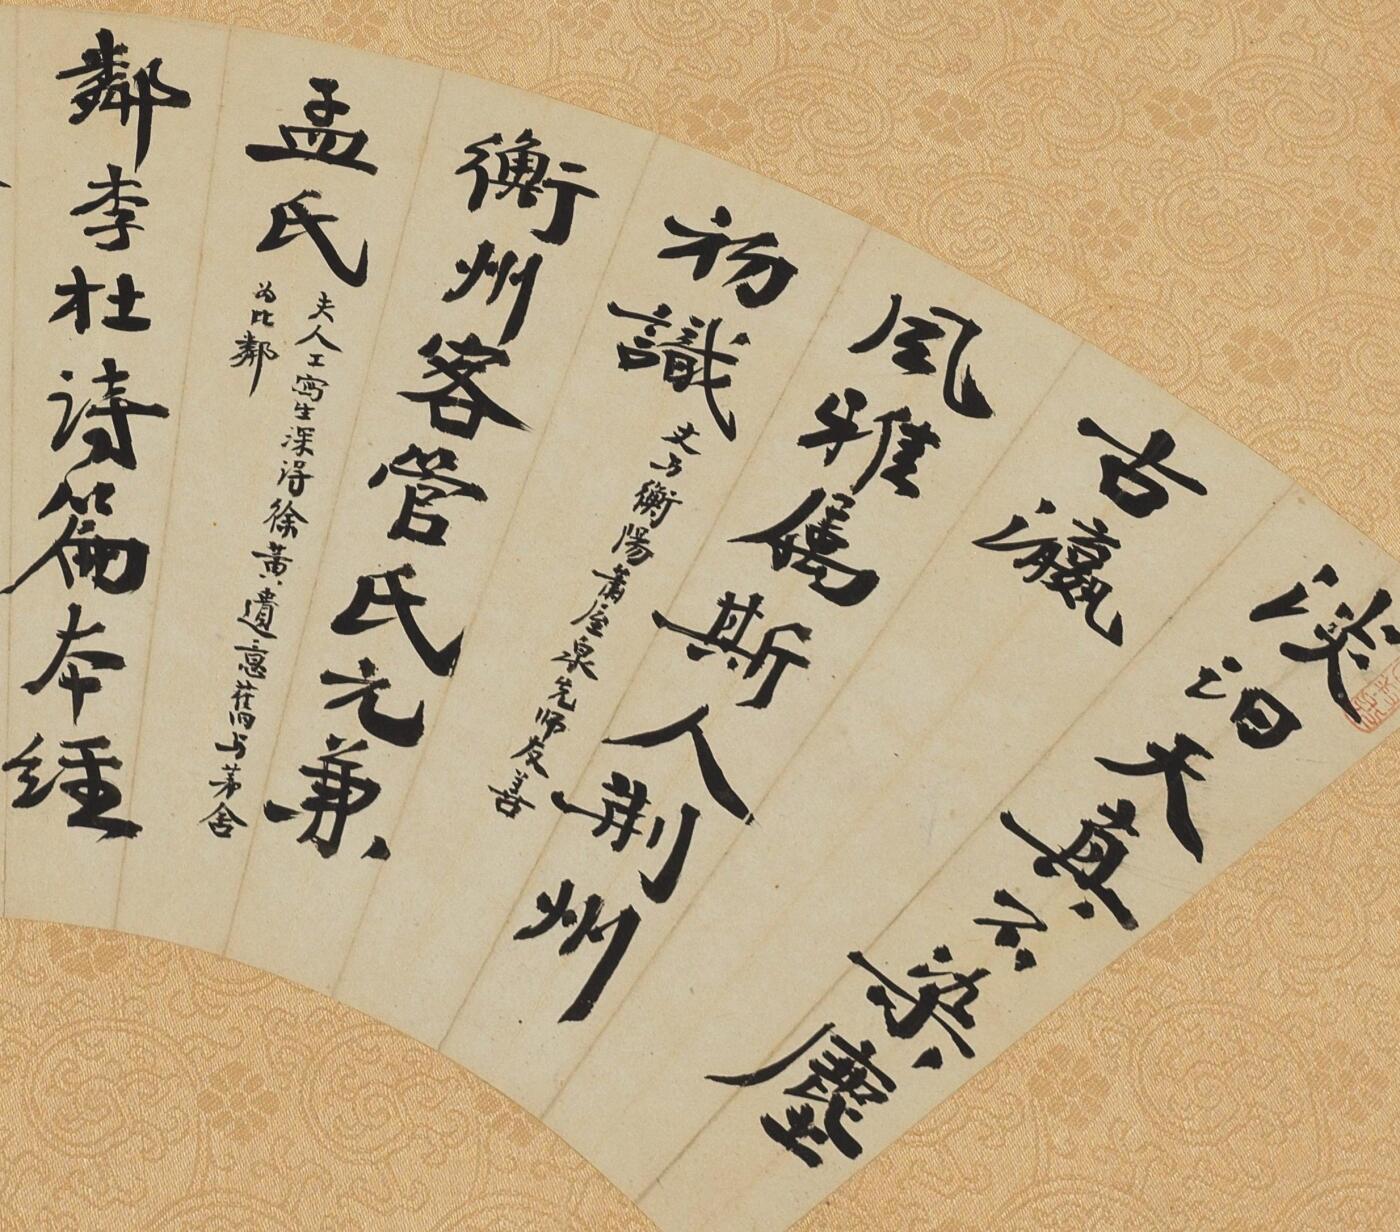 淡泊天真不染塵
古瀛
風雅屬斯人荊州
初識
丈与衡陽蕭厔泉先师友善
衡州客管氏元兼
孟氏
夫人工寫生深得徐黃遺意舊与茅舍
为比鄰
鄰李杜詩篇本經